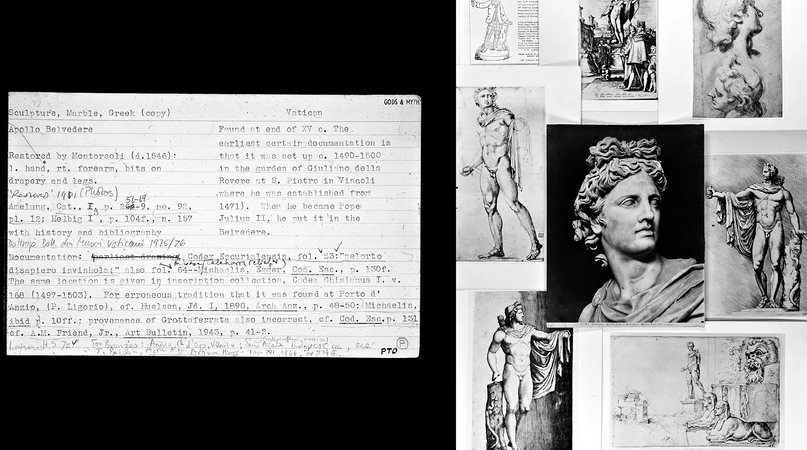 GODS & MYTH
Sculpture, Marble, Greek (copy)
Vatican
Apollo Belvedere
Restored by Montorsoli (d.1546):
l. hand, rt. forearm, bits on
drapery and legs.
"Restored" 1981 (Photos)
Amelung, Cat., I, p. 256-9, no. 92,
pl. 12; Helbig I, p. 104f., n. 157
with history and bibliography
Boll. dei Musei Vaticani 1975/76
Found at end of XV c. The
earliest certain documentation is
that it was set up c. 1490-1500
in the garden of Giuliano della
Rovere at S. Pietro in Vincoli
where he was established from
1471). When he became Pope
Julius II, he put it in the
Belvedere.
Documentation: earliest drawing, Codex Escurialensis, fol. 53: "nelorto
disapiero invinhola;" also fol. 64--Michaelis, Egger, Cod. Esc., p. 130f.
The same location is given in inscription collection, Codex Chisianus I. v.
168 (1497-1503). For erroneous tradition that it was found at Porto d'
Anzio, (P. Ligorio), cf. Huelsen, Jd. I, 1890, Arch Anz., p. 48-50; Michaelis,
ibid p. 10ff.; provenance of Grottaferrata also incorrect, cf. Cod. Esc. p. 131
cf. A.M. Friend, Jr., Art Bulletin, 1943, p. 41-2.
PTO
P